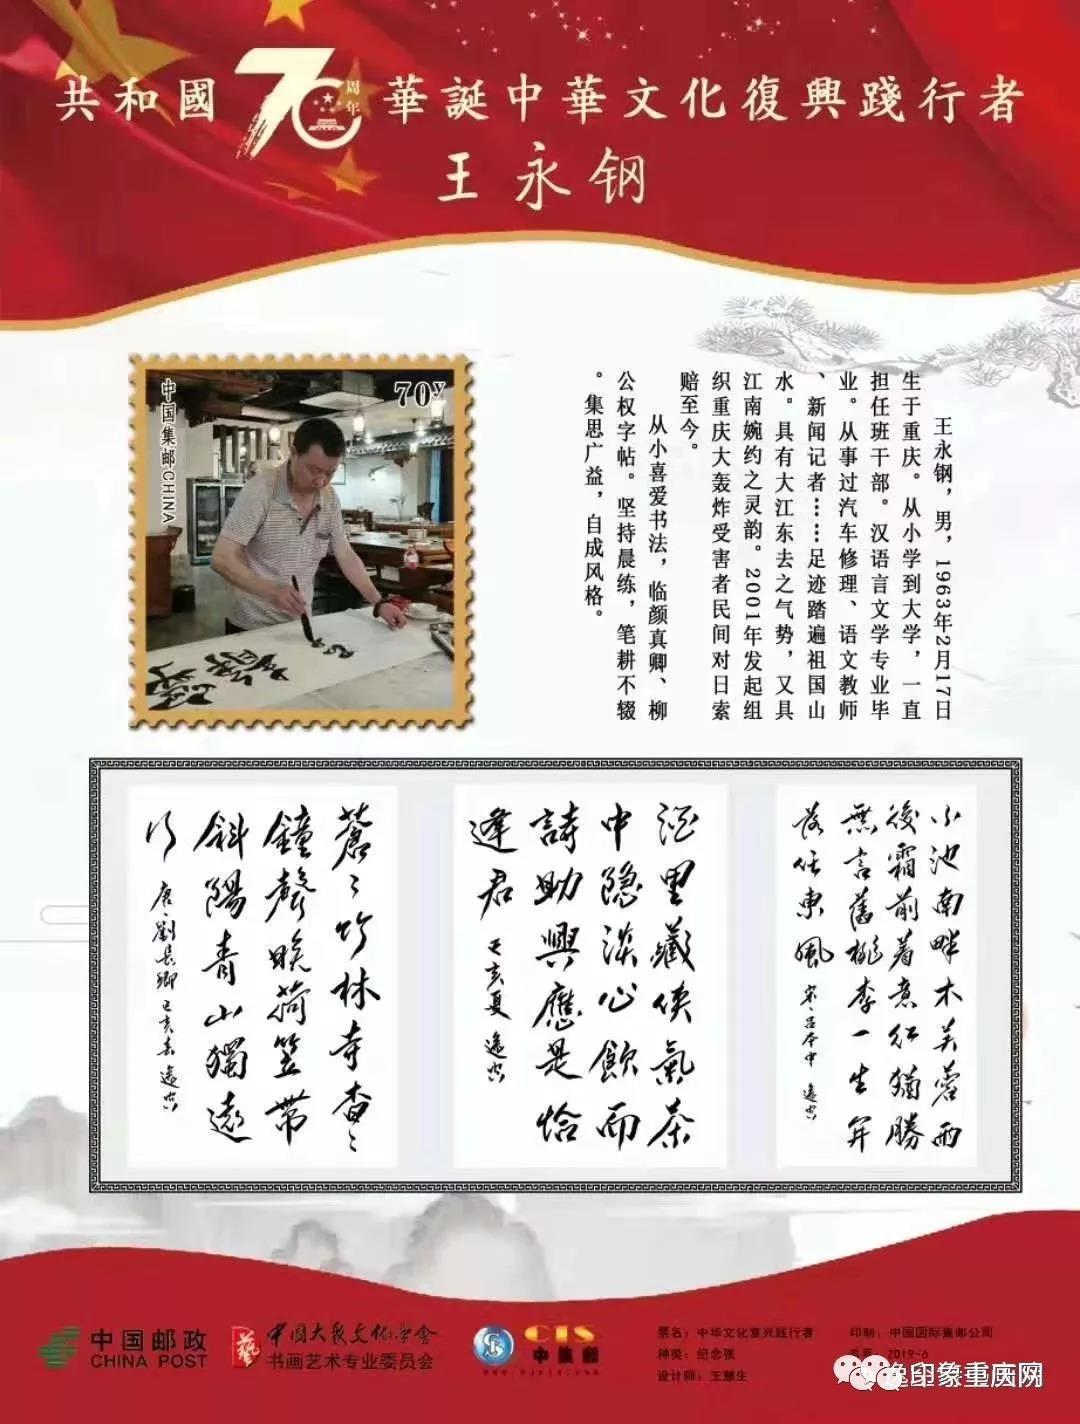 共和國70周年華誕中華文化復興踐行者
王永钢
中国集邮CHINA
70y
王永钢，男，1963年2月17日
生于重庆。从小学到大学，一直
担任班干部。汉语言文学专业毕
业。从事过汽车修理、语文教师
、新闻记者……足迹踏遍祖国山
水。具有大江东去之气势，又具
江南婉约之灵韵。2001年发起组
织重庆大轰炸受害者民间对日索
赔至今。
从小喜爱书法，临颜真卿、柳
公权字帖。坚持晨练，笔耕不辍
。集思广益，自成风格。
小池南畔木芙蓉雨
後霜前着意红猶勝
無言舊桃李一生开
落任東風
宋·吕本中
酒里藏侠氣茶
中隐淡心飲而
詩助興應是恰
逢君
己亥夏
蒼〻竹林寺杳〻
鐘聲晚荷笠带
斜陽青山獨遠
唐·劉長卿
中国邮政
CHINA POST
藝
中国大众文化学会
书画艺术专业委员会
CIS
票名：中华文化复兴践行者
种类：纪念张
设计师：王慧生
印制：中国国际集邮公司
2019-6
逸印象重庆网